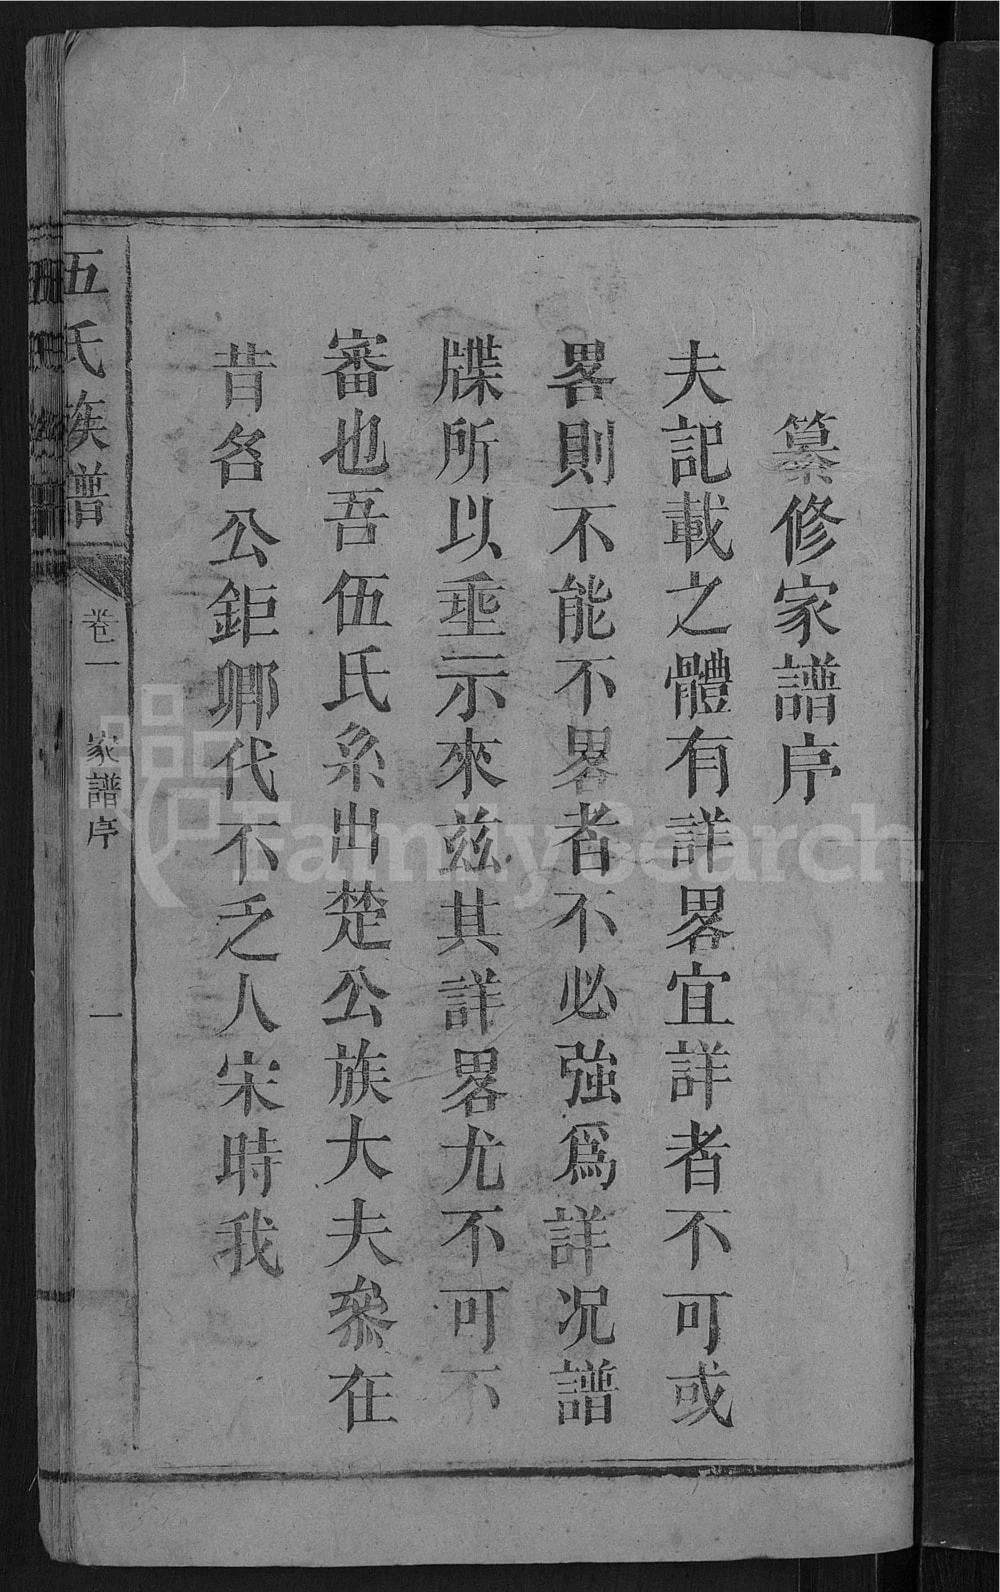 纂修家譜序
夫記載之體有詳畧宜詳者不可或
畧則不能不畧者不必強爲詳况譜
牒所以垂示來兹其詳畧尤不可不
審也吾伍氏系出楚公族大夫叅在
昔名公鉅卿代不乏人宋時我
伍氏族譜
卷一
家譜序
一
FamilySearch